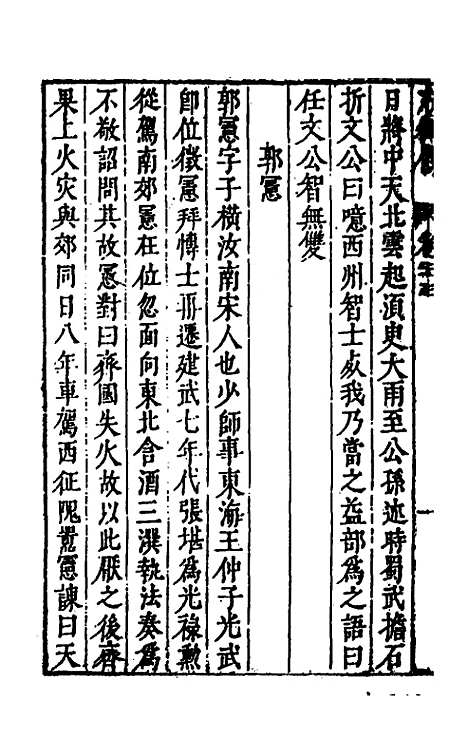 日將中天北雲起湏臾大雨至公孫述時蜀武擔石
折文公曰噫西州智士死我乃當之益部爲之語曰
任文公智無雙
郭憲
郭憲字子橫汝南宋人也少師事東海王仲子光武
卽位徵憲拜博士再遷建武七年代張堪爲光祿勲
從駕南郊憲在位忽面向東北含酒三潠執法奏爲
不敬詔問其故憲對曰齊國失火故以此厭之後齊
果上火灾與郊同日八年車駕西征隗囂憲諫曰天